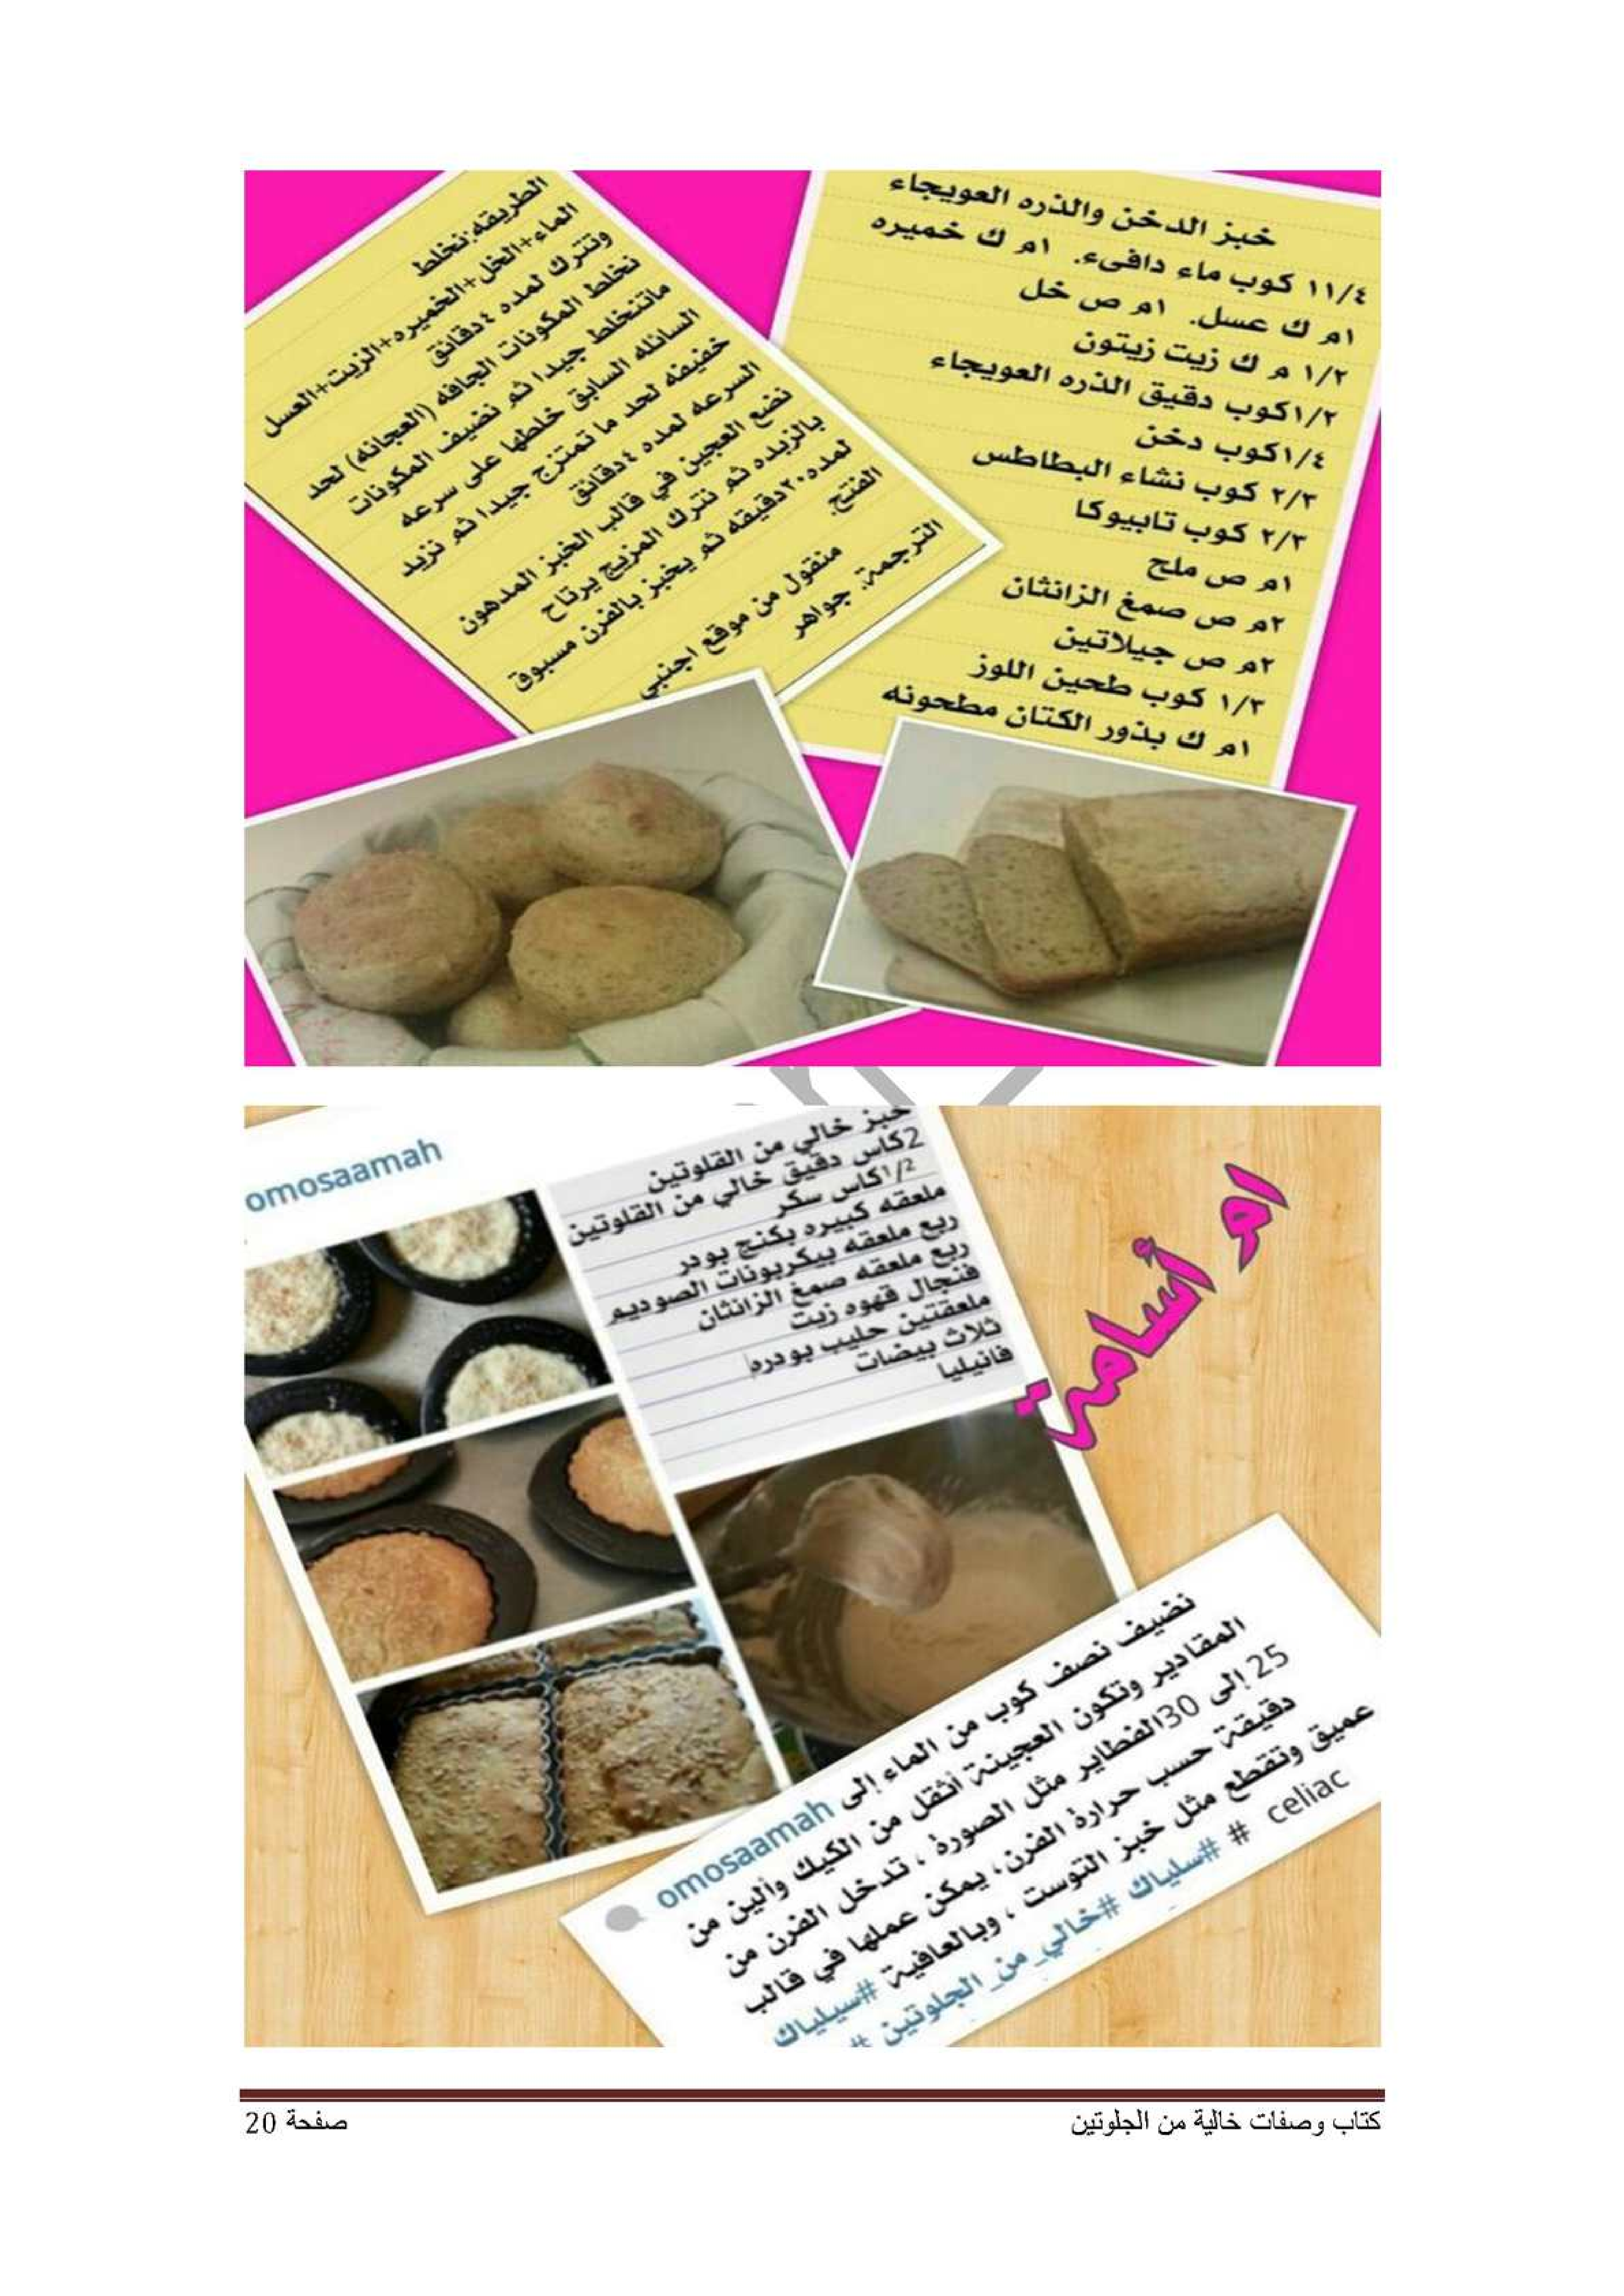 خبز الدخن والذره العويجاء
١١/٤ كوب ماء دافىء. ١م ك خميره
١م ك عسل. ١م ص خل
١/٢ م ك زيت زيتون
١/٢كوب دقيق الذره العويجاء
١/٤كوب دخن
٢/٣ كوب نشاء البطاطس
٢/٣ كوب تابيوكا
١م ص ملح
٢م ص صمغ الزانثان
٢م ص جيلاتين
١/٣ كوب طحين اللوز
١م ك بذور الكتان مطحونه
الطريقه:نخلط
الماء+الخل+الخميره+الزيت+العسل
وتترك لمده ٤دقائق
نخلط المكونات الجافه (العجانه) لحد
ماتنخلط جيدا ثم نضيف المكونات
السائله السابق خلطها على سرعه
خفيفه لحد ما تمتزج جيدا ثم نزيد
السرعه لمده ٤دقائق
نضع العجين في قالب الخبز المدهون
بالزبده ثم نترك المزيج يرتاح
لمده٢٠دقيقه ثم يخبز بالفرن مسبوق
الفتح.
منقول من موقع اجنبي
الترجمة: جواهر
omosaamah
خبز خالي من القلوتين
2كاس دقيق خالي من القلوتين
1/2كاس سكر
ملعقه كبيره بكنج بودر
ربع ملعقه بيكربونات الصوديم
ربع ملعقه صمغ الزانثان
فنجال قهوه زيت
ملعقتين حليب بودره
ثلاث بيضات
فانيليا
ام أسامة
omosaamah نضيف نصف كوب من الماء إلى
المقادير وتكون العجينة أثقل من الكيك وألين من
الفطاير مثل الصورة ، تدخل الفرن من 25 إلى 30
دقيقة حسب حرارة الفرن، يمكن عملها في قالب
عميق وتقطع مثل خبز التوست ، وبالعافية #سيلياك
# celiac #سلياك #خالي_من_الجلوتين #
كتاب وصفات خالية من الجلوتين
صفحة 20